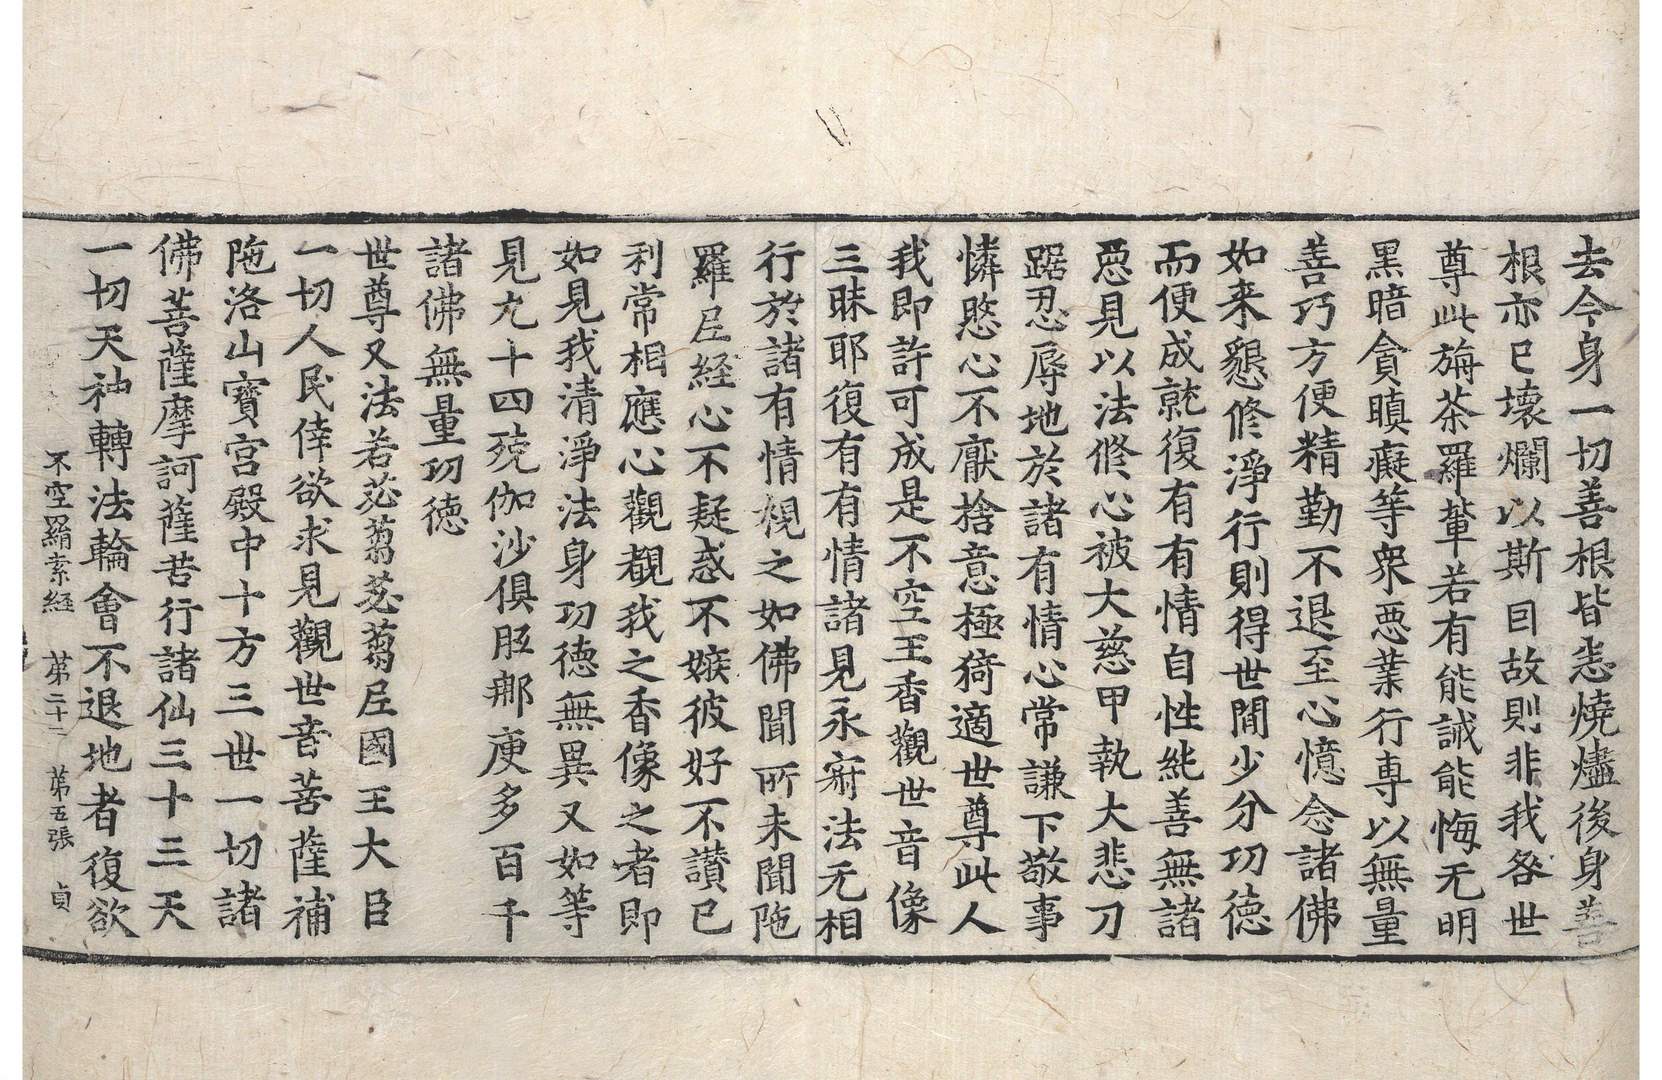 去今身一切善根皆悉燒燼後身善
根亦已壞爛以斯因故則非我咎世
尊此旃荼羅輩若有能誡能悔无明
黑暗貪瞋癡等衆惡業行專以無量
善巧方便精勤不退至心憶念諸佛
如来懇修淨行則得世間少分功德
而便成就復有有情自性純善無諸
惡見以法修心被大慈甲執大悲刀
踞忍辱地於諸有情心常謙下敬事
憐愍心不厭捨意極猗適世尊此人
我即許可成是不空王香觀世音像
三昧耶復有有情諸見永寂法无相
行於諸有情視之如佛聞所未聞陁
羅尼經心不疑惑不嫉彼好不讃已
利常相應心觀覩我之香像之者即
如見我清淨法身功德無異又如等
見九十四殑伽沙俱胝那庾多百千
諸佛無量功徳
世尊又法若苾蒭苾蒭尼國王大臣
一切人民倖欲求見觀世音菩薩補
陁洛山寶宫殿中十方三世一切諸
佛菩薩摩訶薩苦行諸仙三十三天
一切天神轉法輪會不退地者復欲
不空羂索経　第二十二　第五張　貞